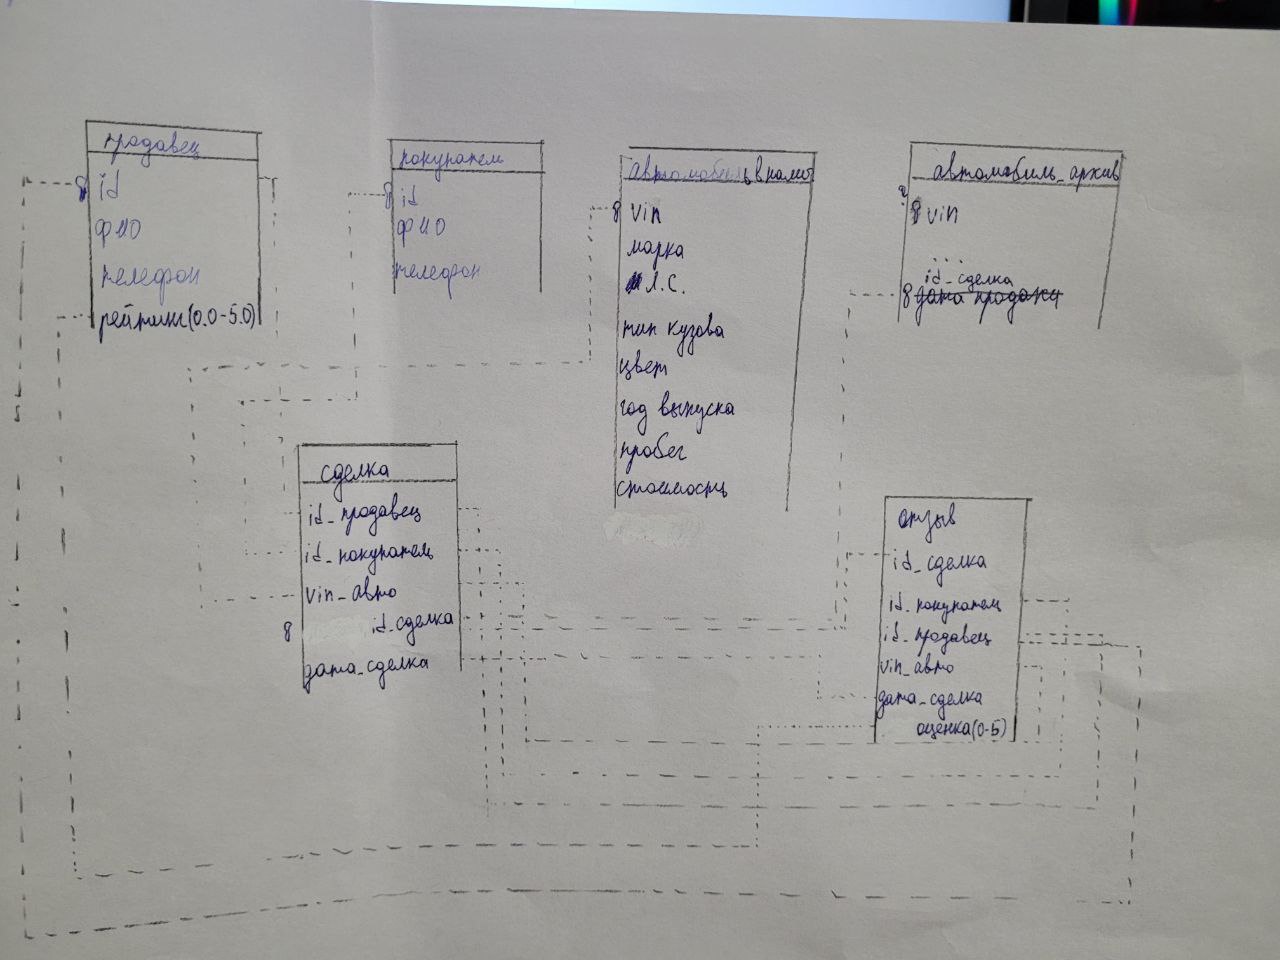 продавец
id
ФИО
телефон
рейтинг(0.0-5.0)
покупатель
id
ФИО
телефон
автомобиль_в нали
vin
марка
Л.С.
тип кузова
цвет
год выпуска
пробег
стоимость
автомобиль_архив
vin
...
id_сделка
дата продажи
сделка
id_продавец
id_покупатель
vin_авто
id_сделка
дата_сделка
отзыв
id_сделка
id_покупатель
id_продавец
vin_авто
дата_сделка
оценка(0-5)